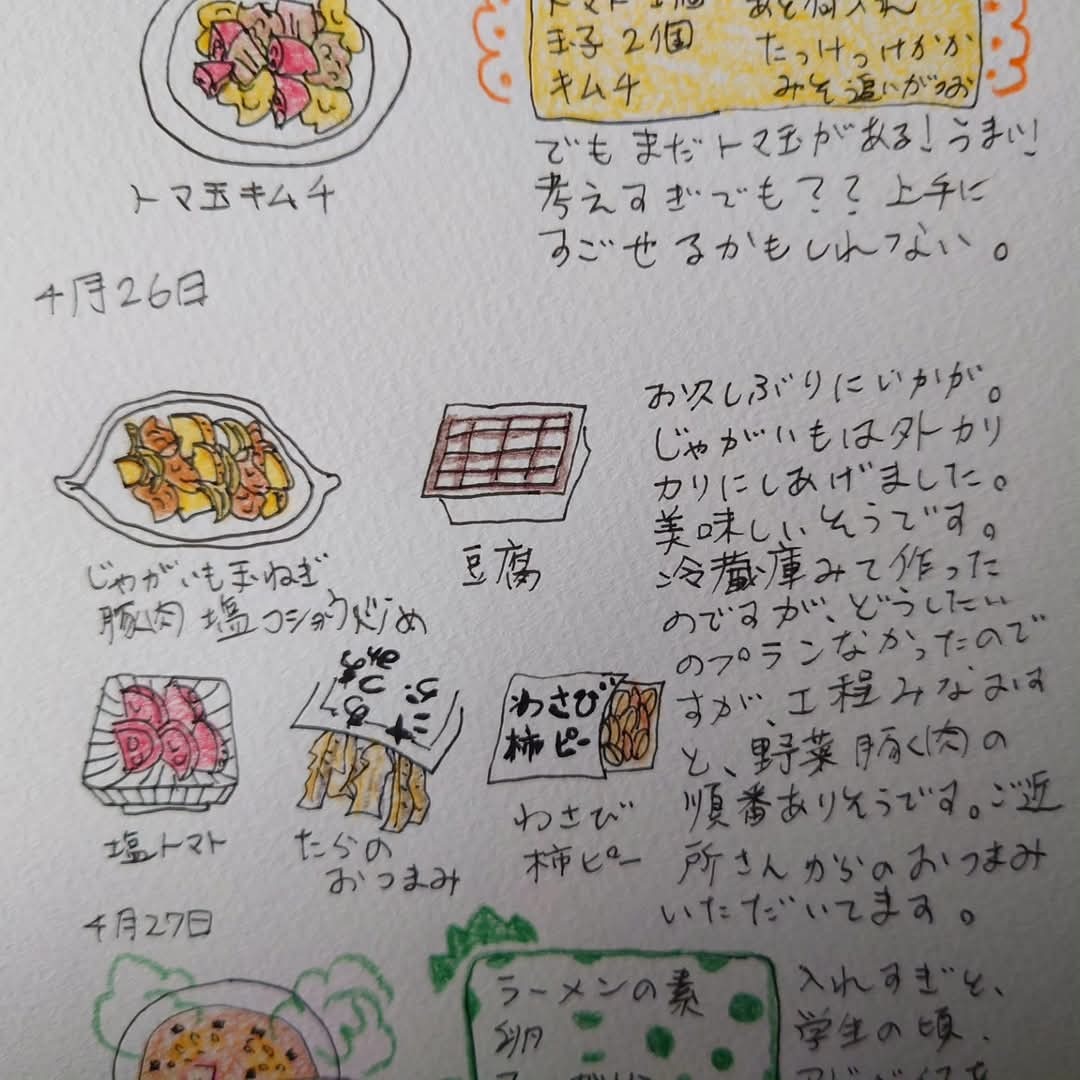 トマト
玉子2個
キムチ
たっけっけかか
みそ追いがつお
トマ玉キムチ
でもまだトマ玉がある!うまい!
考えすぎでも??上手に
すごせるかもしれない。
4月26日
じゃがいも玉ねぎ
豚肉 塩コショウ炒め
豆腐
お久しぶりにいかが。
じゃがいもは外カリ
カリにしあげました。
美味しいそうです。
冷蔵庫みて作った
のですが、どうしたい
のプランなかったので
すが、工程みなおす
と、野菜豚肉の
順番ありそうです。ご近
所さんからのおつまみ
いただいてます。
塩トマト
たらの
おつまみ
わさび
柿ピー
わさび
柿ピー
4月27日
ラーメンの素
卵
入れすぎと、
学生の頃、